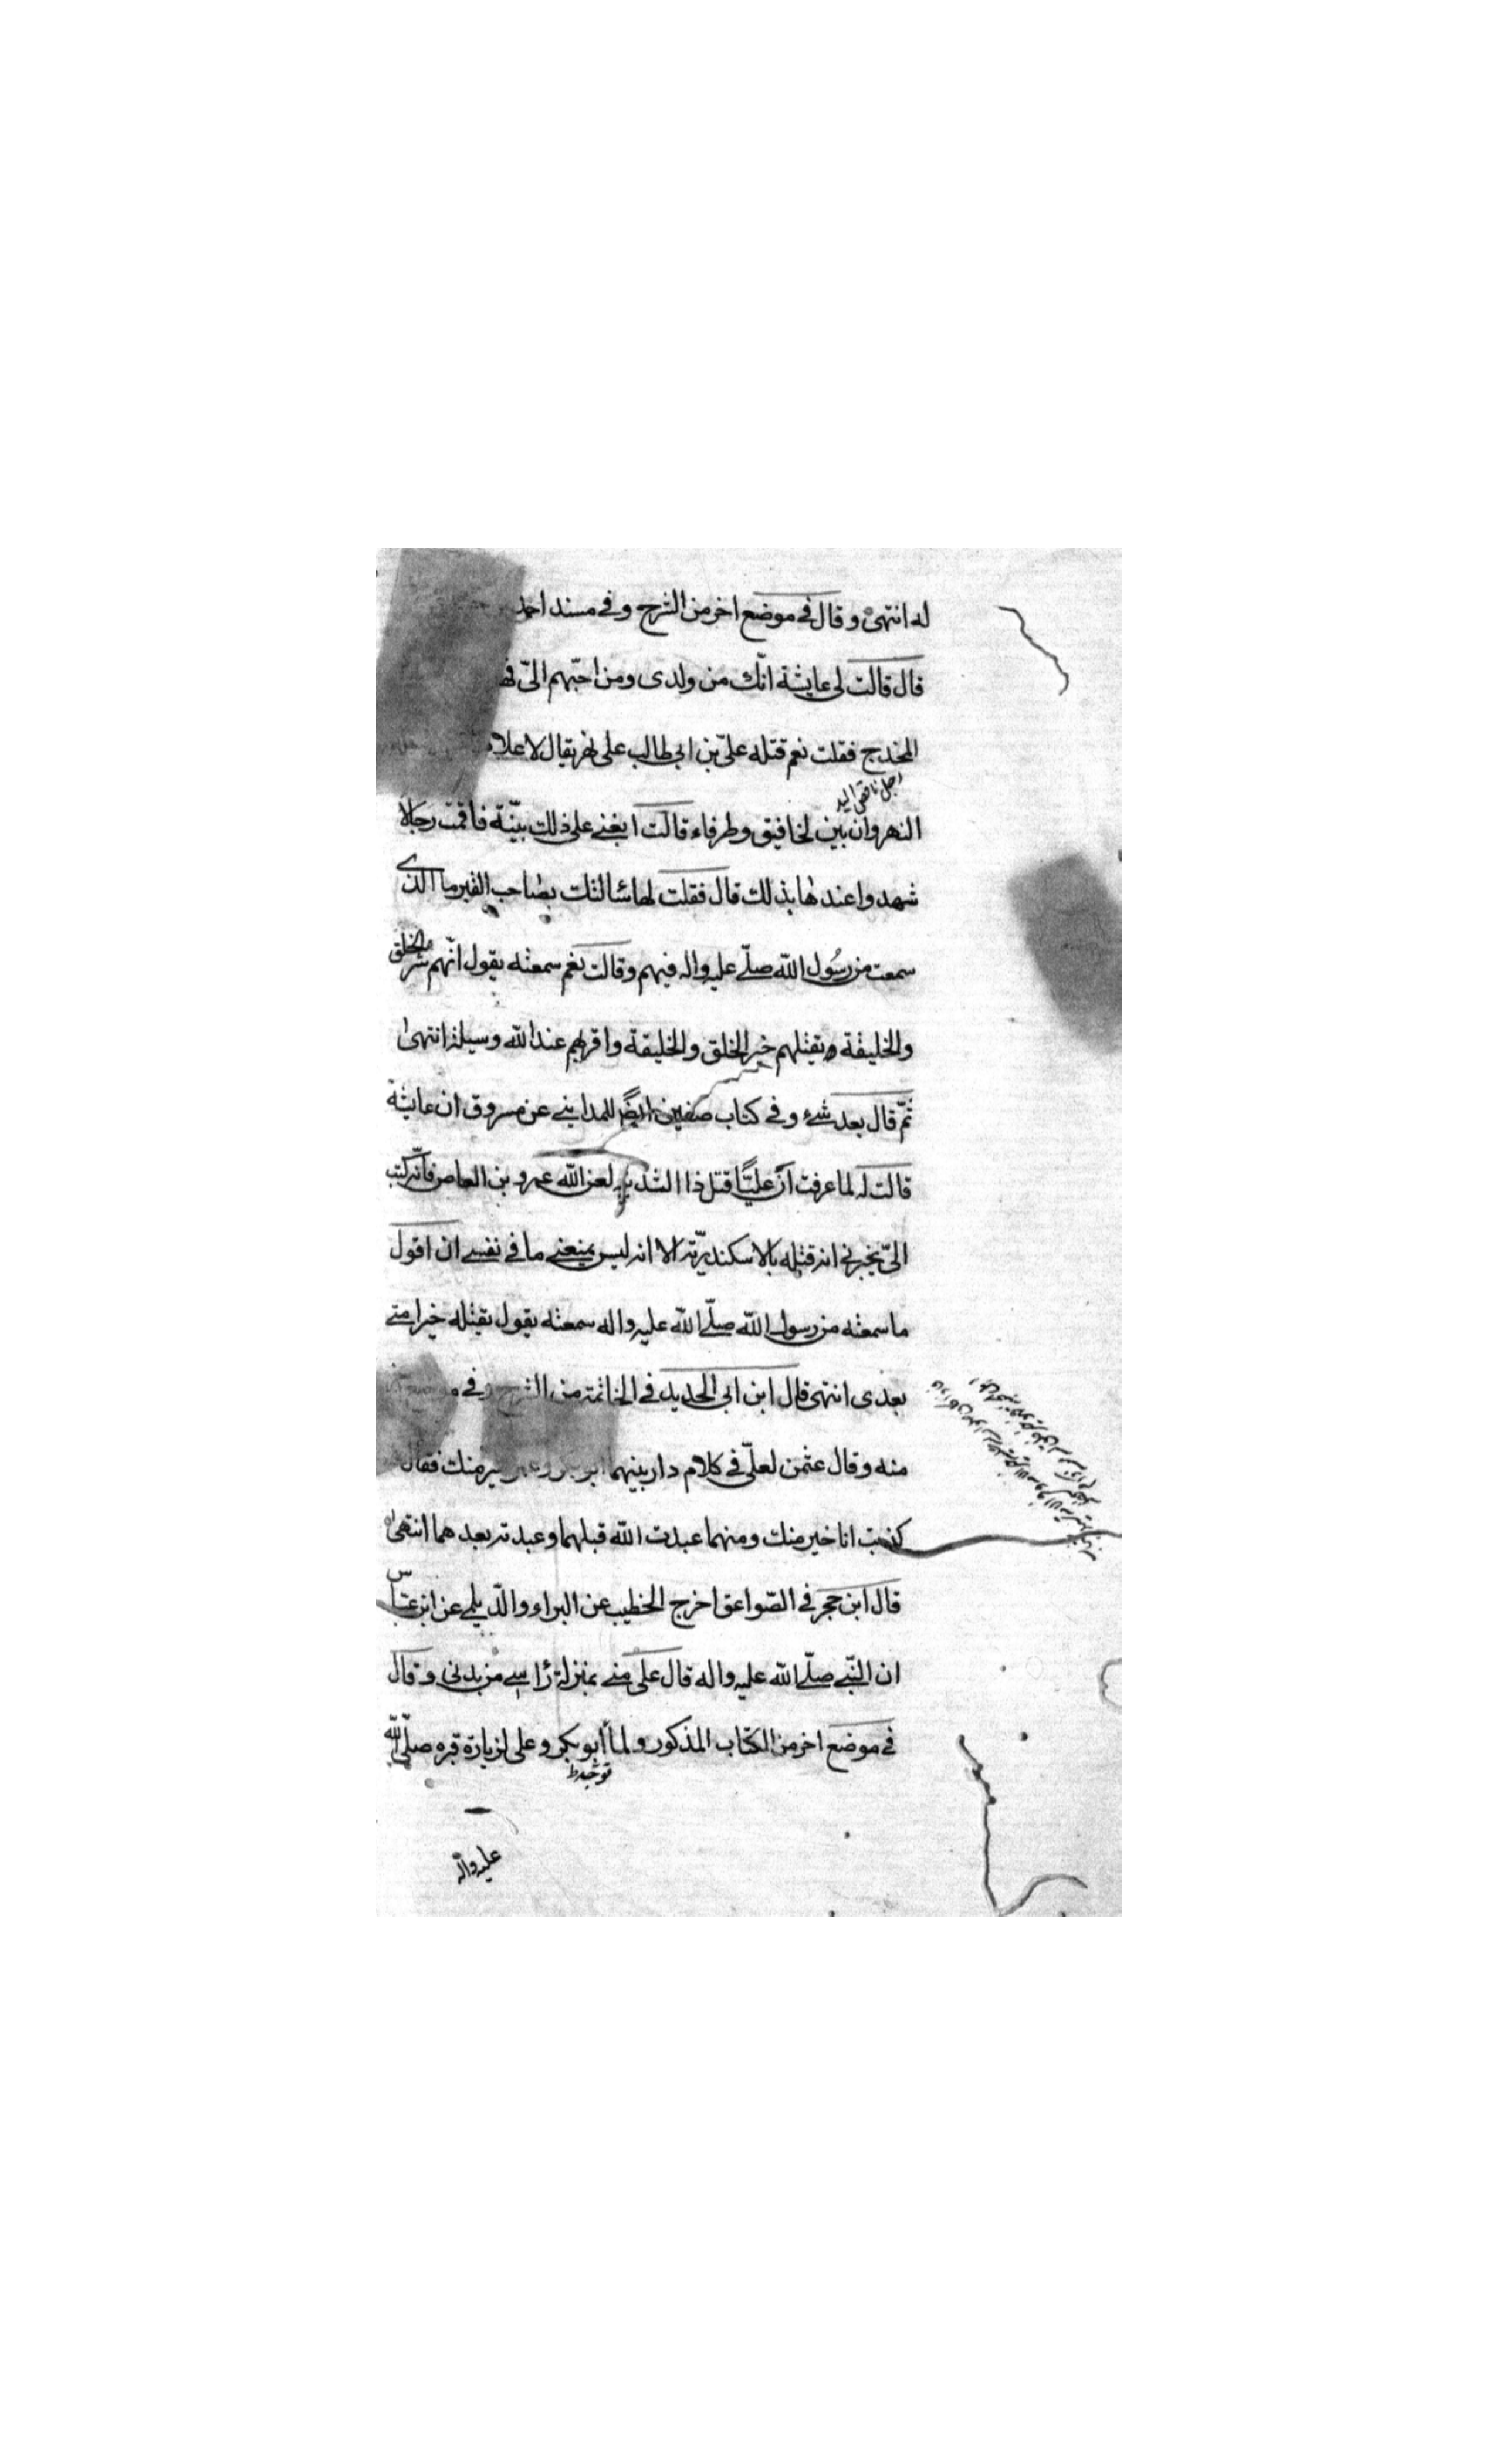 له انتهى وقال في موضع اخر من الشرح وفي مسند احمد
قال قالت لى عايشة انّك من ولدى ومن احبّهم الىّ
المخدج فقلت نعم قتله علىّ بن ابى طالب على نهر يقال لاعلاه
النهروان بين لخافيق وطرفاء قالت ابغنى على ذلك بيّنة فاقمت رجالا
شهدوا عندها بذلك قال فقلت لها سالتك بصاحب القبر ما الذى
سمعت من رسول الله صلّى عليه واله فيهم وقالت نعم سمعته يقول انّهم شرّ الخلق
والخليقة يقتلهم خير الخلق والخليقة واقربهم عند الله وسيلة انتهى
ثمّ قال بعد شئ وفى كتاب صفين ايضً للمداينى عن مسروق ان عايشة
قالت له لما عرفت انّ عليًّا قتل ذا الثدية لعن الله عمرو بن العاص فانّه كتب
الىّ يخبرنى انه قتله بالاسكندريّة الا انه ليس يمنعنى ما فى نفسى ان اقول
ما سمعته من رسول الله صلّى الله عليه واله سمعته يقول يقتله خير امتى
بعدى انتهى قال ابن ابى الحديد فى الخاتمة من الشرح وفى
منه وقال عثمن لعلىّ فى كلام دار بينهما ابو بكر وعمر خير منك فقال
كذبت انا خير منك ومنهما عبدت الله قبلهما وعبدته بعدهما انتهى
قال ابن حجر فى الصّواعق اخرج الخطيب عن البراء والدّيلمى عن ابن عبّاس
ان النّبى صلّى الله عليه واله قال علىّ منى بمنزلة راسى من بدنى وقال
فى موضع اخر من الكتاب المذكور ولما أبو بكر وعلى لزيارة قبره صلّى الله
عليه واله